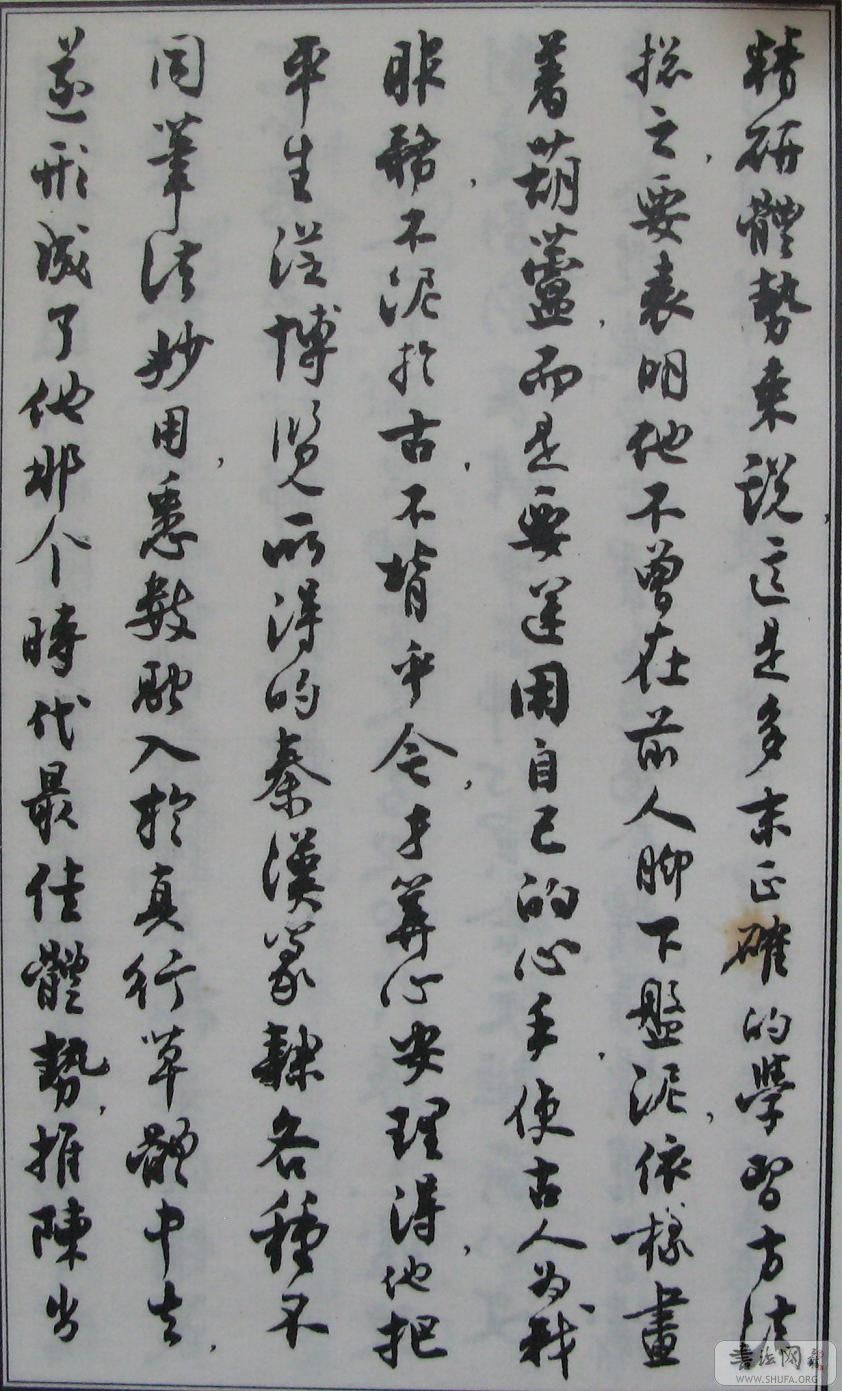 精研體勢來説,這是多末正確的學習方法
揔之,要表明他不曾在前人脚下盤泥,依樣畫
着葫蘆,而是要運用自己的心手,使古人為我
服務,不泥於古,不背乎今,才算心安理得,他把
平生從博覽所得的秦漢篆隸各種不
同筆法妙用,悉數融入於真行草體中去,
遂形成了他那个時代最佳體勢,推陳出
書法网
WWW.SHUFA.ORG